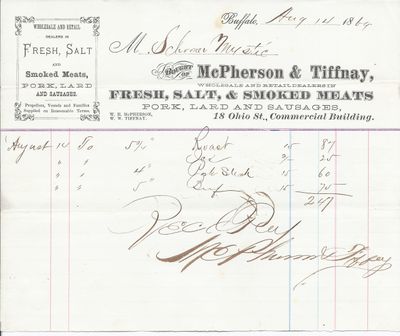 WHOLESALE AND RETAIL
DEALERS IN
FRESH, SALT
AND
Smoked Meats,
PORK, LARD
AND SAUSAGES.
Propellors, Vessels and Families
Supplied on Reasonable Terms.
Buffalo, Aug 14 186
M Schooner Mystic
BOUGHT OF McPherson & Tiffnay,
WHOLESALE AND RETAIL DEALERS IN
FRESH, SALT, & SMOKED MEATS
PORK, LARD AND SAUSAGES,
W. H. McPHERSON,
W. W. TIFFNAY.
18 Ohio St., Commercial Building.
August 14 To Roast 15 87
" " 25
" " 4" Steak 15 60
" " 5" Beef 15 75
247
Rec'd Pay
McPherson & Tiffnay